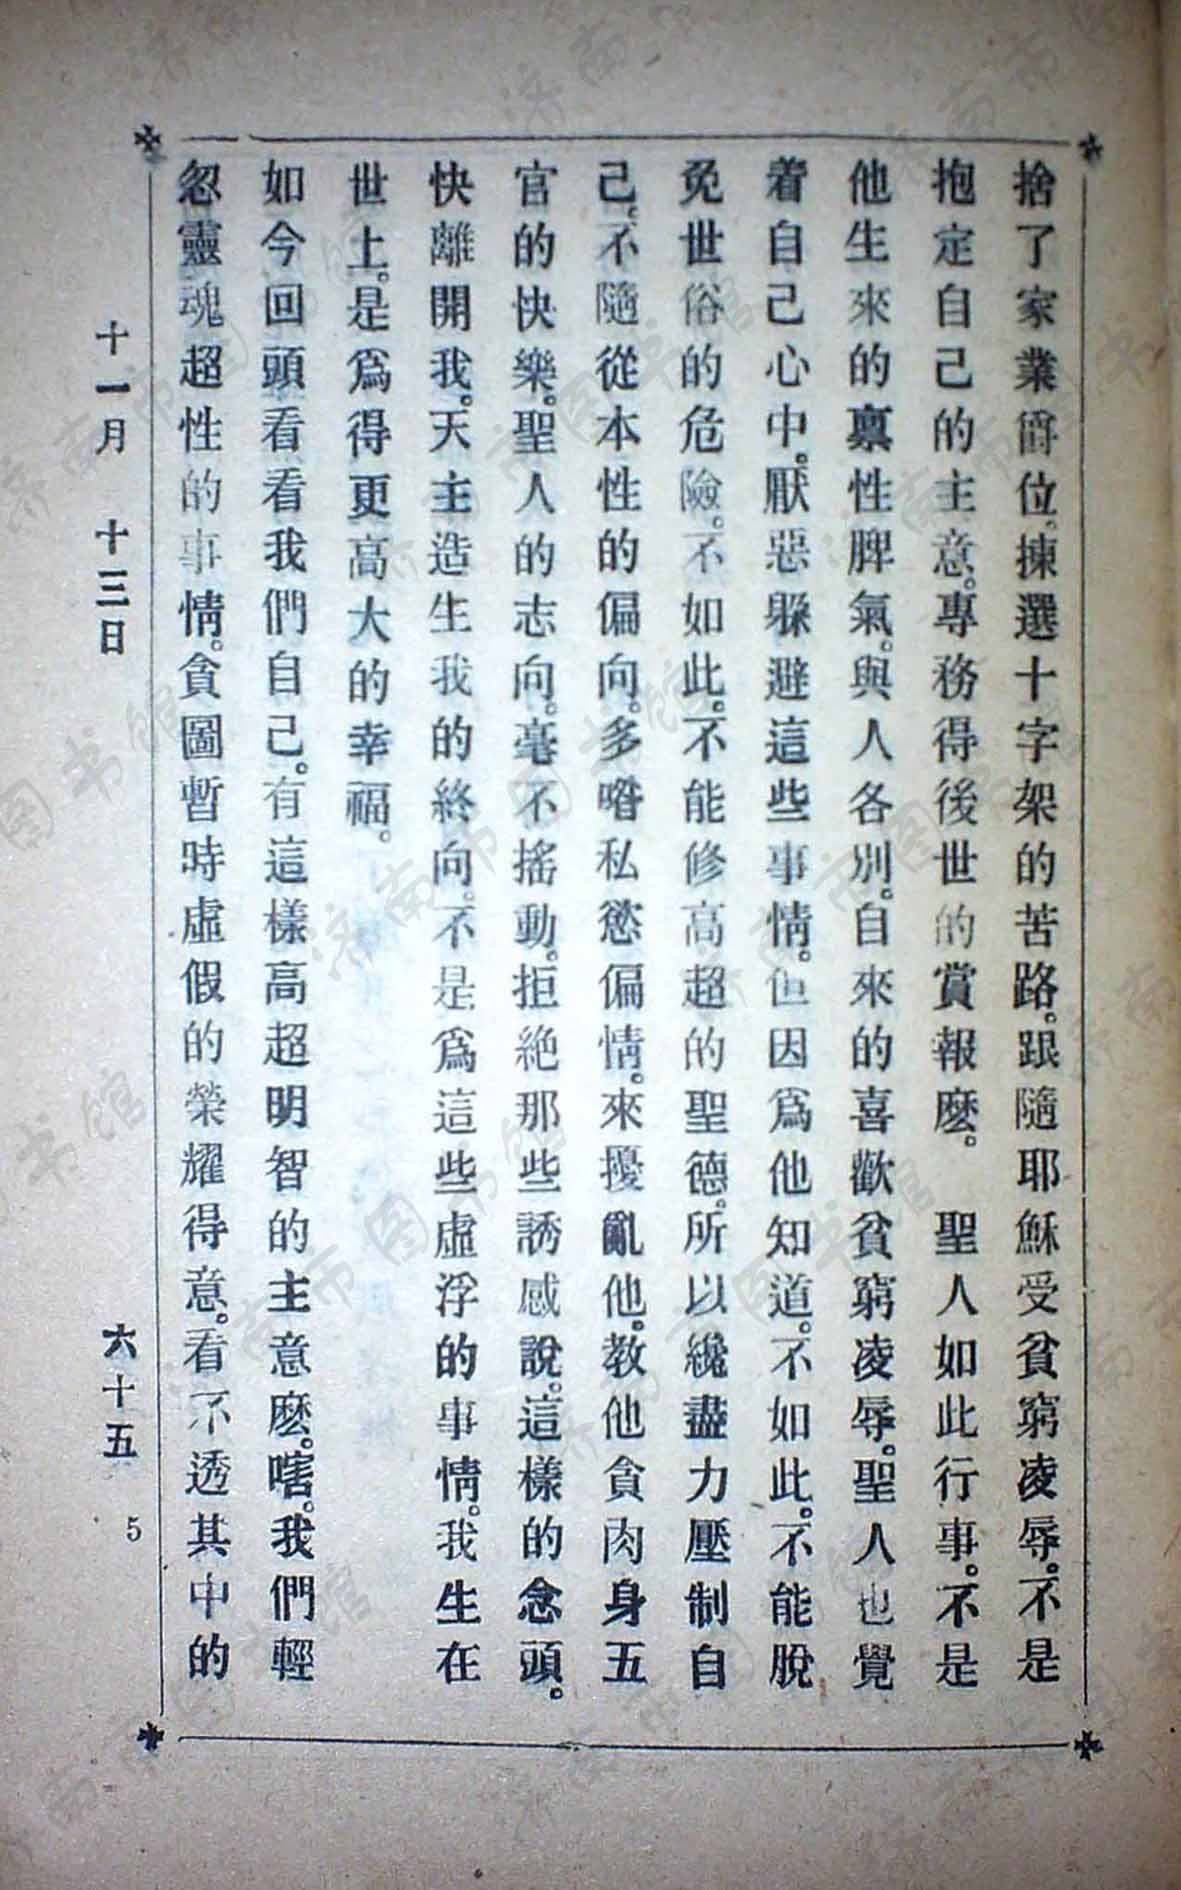 捨了家業爵位。揀選十字架的苦路。跟隨耶穌受貧窮凌辱。不是
抱定自己的主意。專務得後世的賞報麽。 聖人如此行事。不是
他生來的禀性脾氣。與人各別。自來的喜歡貧窮凌辱。聖人也覺
着自己心中。厭惡躲避這些事情。但因爲他知道。不如此。不能脫
免世俗的危險。不如此。不能修高超的聖德。所以纔盡力壓制自
己。不隨從本性的偏向。多喒私慾偏情。來擾亂他。教他貪肉身五
官的快樂。聖人的志向。毫不搖動。拒絕那些誘感說。這樣的念頭。
快離開我。天主造生我的終向。不是爲這些虛浮的事情。我生在
世上。是爲得更高大的幸福。
如今回頭看看我們自己。有這樣高超明智的主意麽。嗐。我們輕
忽靈魂超性的事情。貪圖暫時虛假的榮耀得意。看不透其中的
十一月 十三日 六十五 5
济南市图书馆